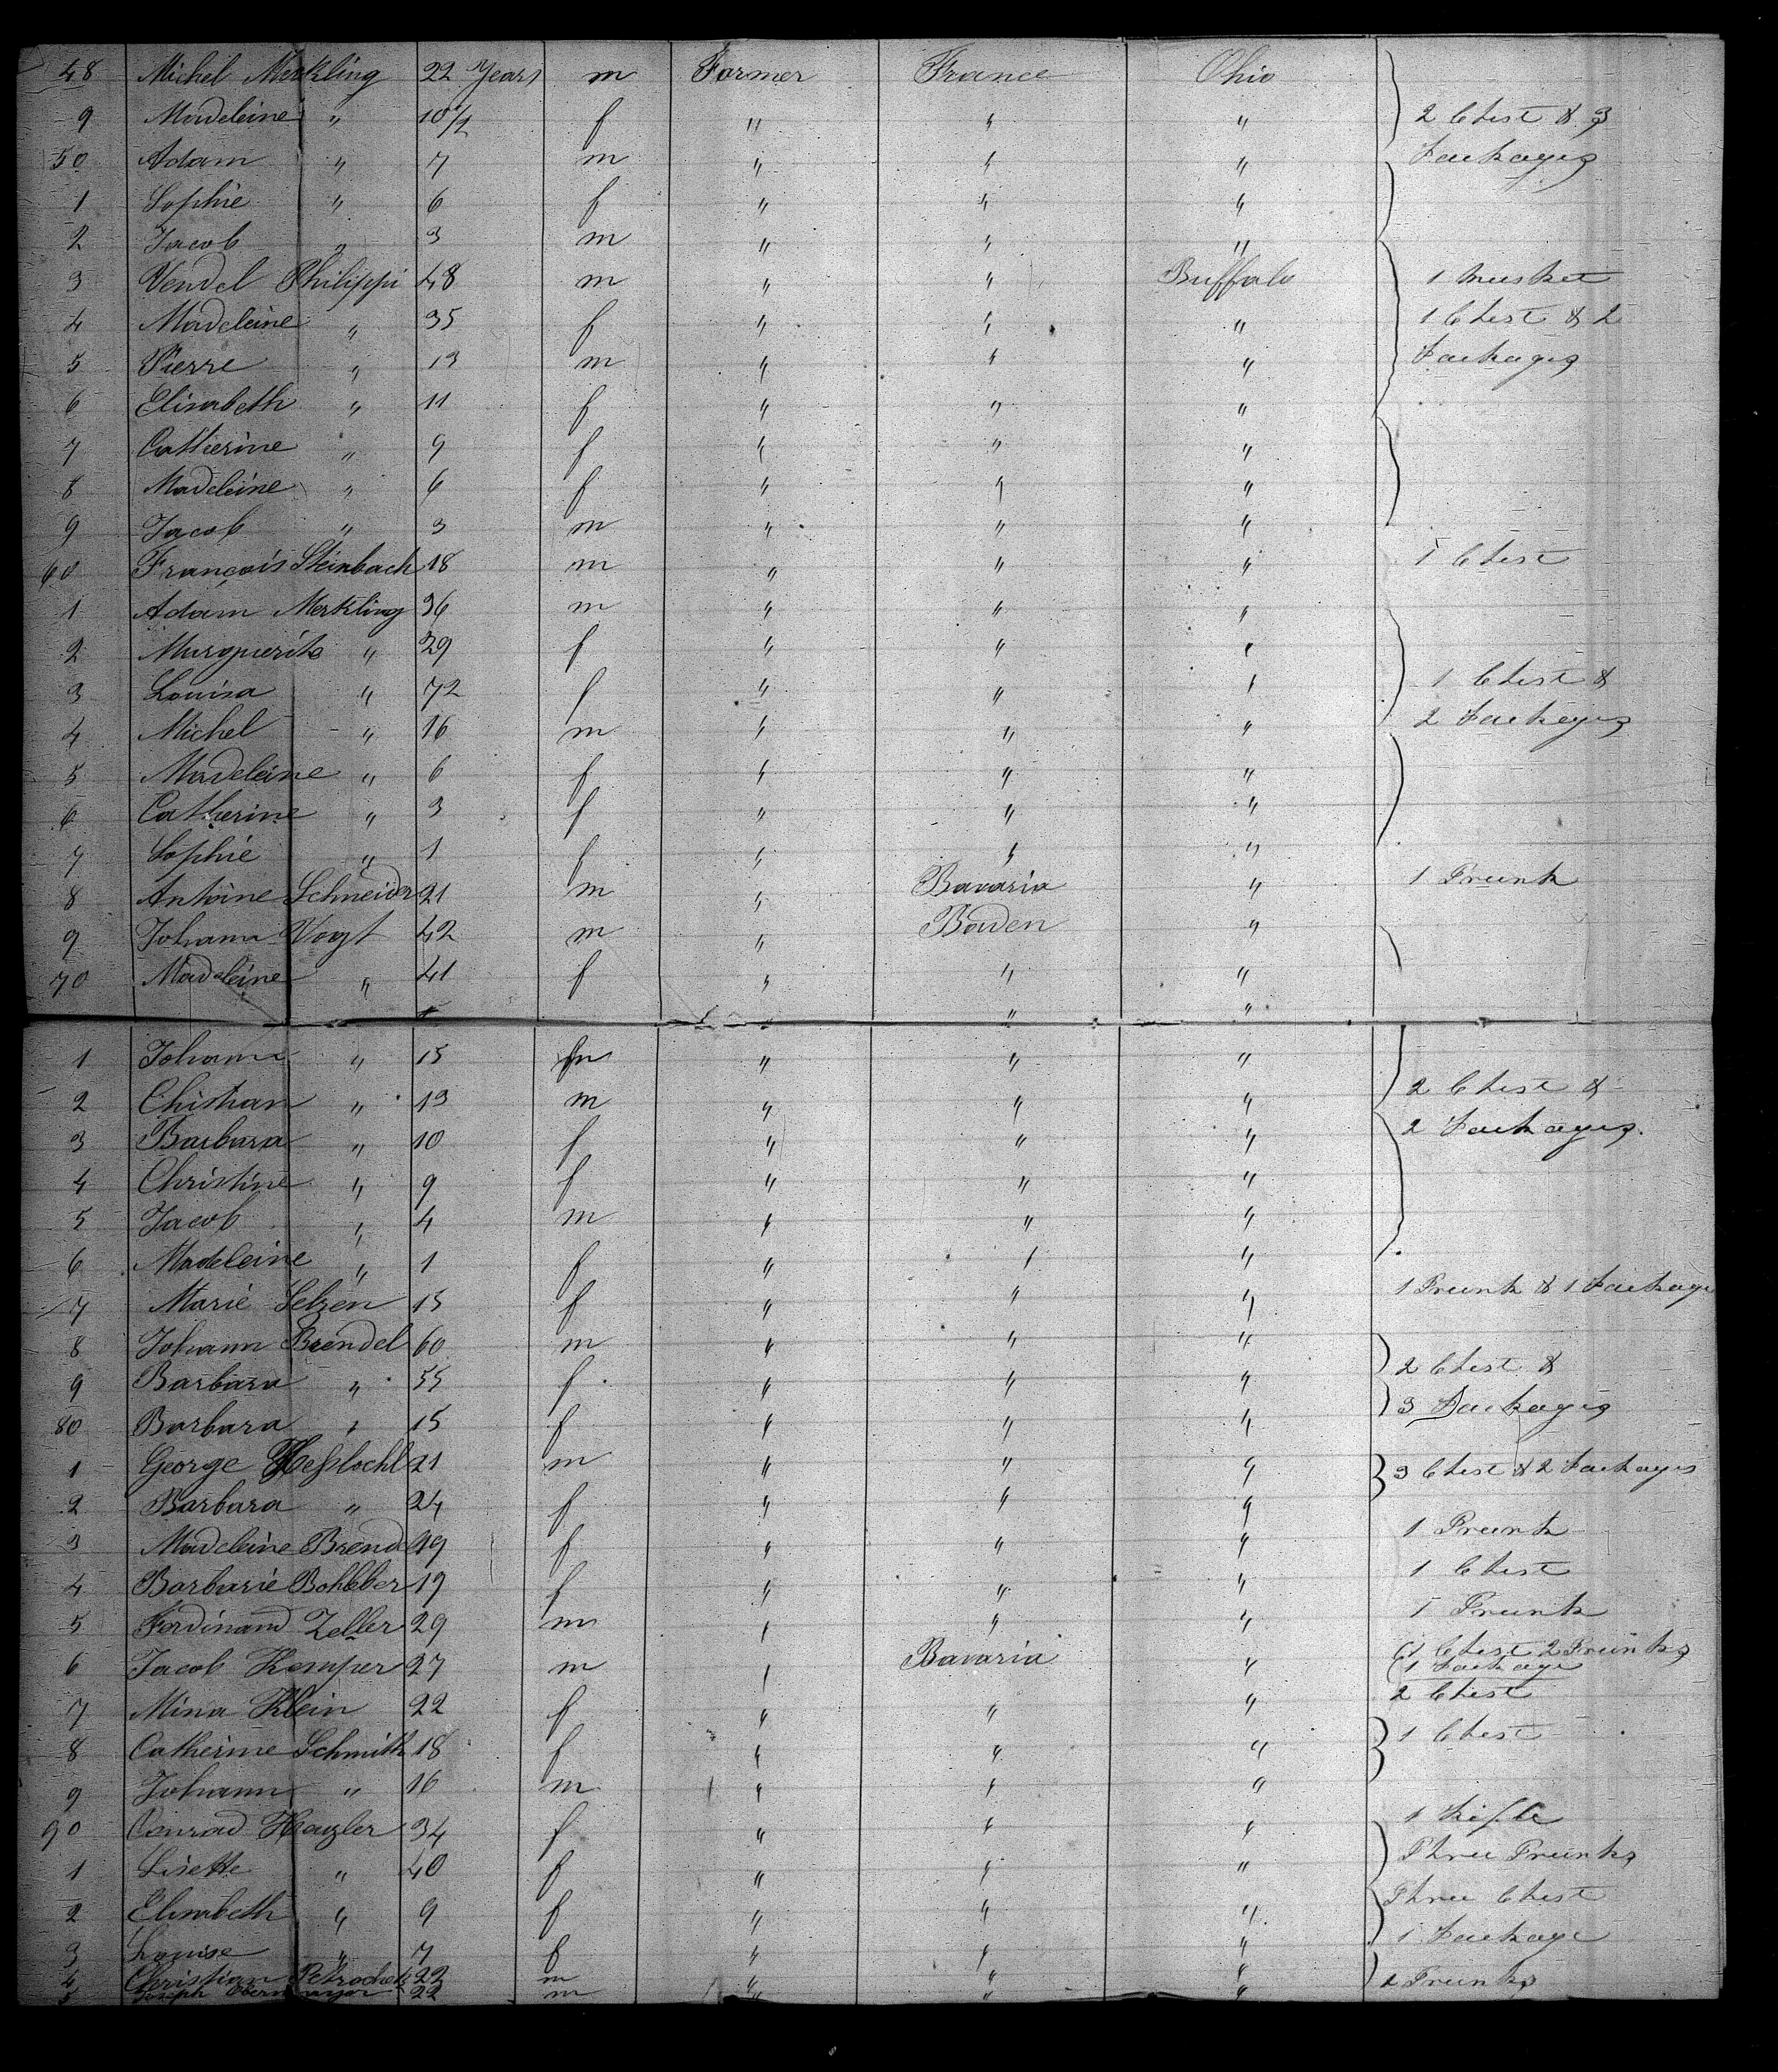 48 Michel Merkling 22 Years m Farmer France Ohio
9 Madeleine " 10½ f " " " 2 Chest & 3
50 Adam " 7 m " " " Packages
1 Sophie " 6 f " " "
2 Jacob " 3 m " " "
3 Vendel Philippi 48 m " " Buffalo 1 musket
4 Madeleine " 35 f " " " 1 Chest & 2
5 Pierre " 13 m " " " Packages
6 Elisabeth " 11 f " " "
7 Catherine " 9 f " " "
8 Madeleine " 6 f " " "
9 Jacob " 3 m " " "
60 François Steinbach 18 m " " " 1 Chest
1 Adam Merkling 36 m " " "
2 Murguerite " 29 f " " "
3 Louisa " 72 f " " " 1 Chest &
4 Michel " 16 m " " " 2 Packages
5 Madeleine " 6 f " " "
6 Catherine " 3 f " " "
7 Sophie " 1 f " " "
8 Antoine Schneider 21 m " Bavaria " 1 Trunk
9 Johann Vogt 42 m " Baden "
70 Madeleine " 41 f " " "
" " "
1 Johann " 15 m " " "
2 Chistian " 13 m " " " 2 Chest &
3 Barbara " 10 f " " " 2 Packages.
4 Christine " 9 f " " "
5 Jacob " 4 m " " "
6 Madeleine " 1 f " " "
7 Marie Selzen 15 f " " " 1 Trunk & 1 Package
8 Johann Brendel 60 m " " "
9 Barbara " 55 f " " " 2 Chest &
80 Barbara " 15 f " " " 3 Packages
1 George Heßlochl 21 m " " " 3 Chest & 2 Packages
2 Barbara " 24 f " " "
3 Madeleine Brendel 19 f " " " 1 Trunk
4 Barbarie Bohleber 19 f " " " 1 Chest
5 Ferdinand Zeller 29 m " " " 1 Trunk
6 Jacob Kemper 27 m " Bavaria " 1 Chest 2 Trunks
1 Package
7 Mina Klein 22 f " " " 2 Chest
8 Catherine Schmith 18 f " " " 1 Chest
9 Johann " 16 m " " "
90 Conrad Hauzler 34 f " " " 1 Rifle
1 Lisette " 40 f " " " Three Trunks
2 Elisabeth " 9 f " " " Three Chest
3 Louise " 7 f " " " 1 Package
4 Christian 22 m " " " 2 Trunks
5 Joseph 22 m " " "